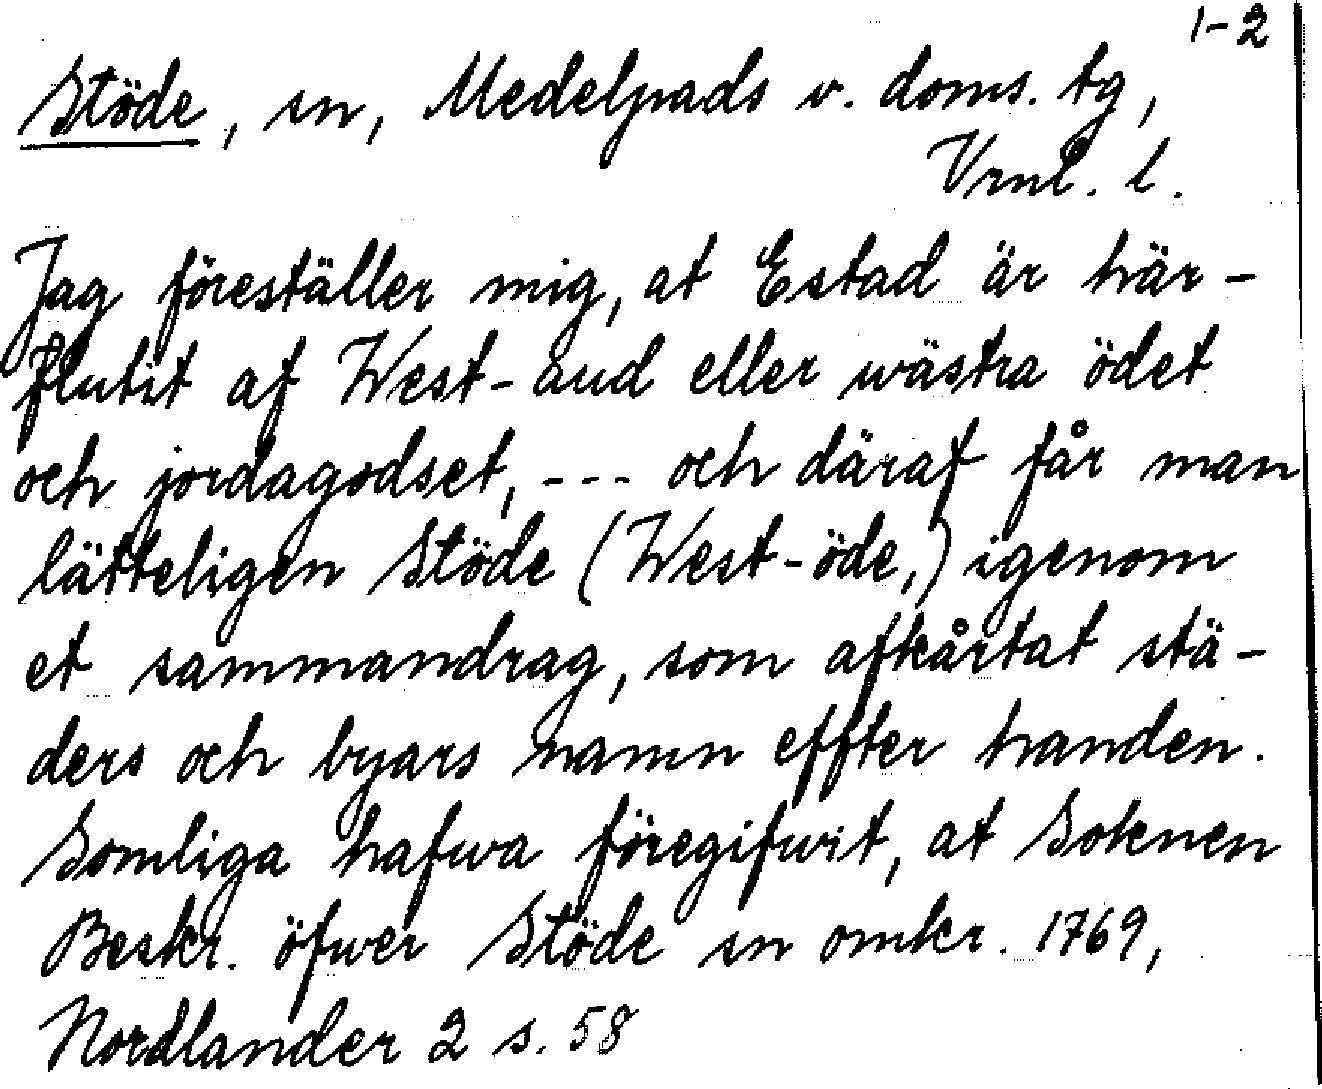 1-2
Stöde, sn, Medelpads v. doms. tg,
Vrnl. l.
Jag föreställer mig, at Estad är här-
flutit af West-aud eller wästra ödet
och jordagodset, --- och däraf får man
lätteligen Stöde (West-öde,) igenom
et sammandrag, som afkårtat stä-
ders och byars namn effter handen.
Somliga hafwa föregifwit, at Soknen
Beskr. öfwer Stöde sn omkr. 1769,
Nordlander 2 s. 58